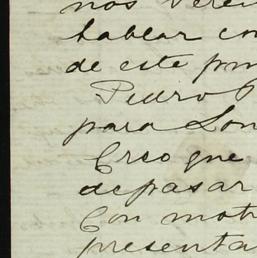 nos vere
hablar con
de este pri
Pedro P
para Lon
Creo que
de pasar
Con moti
presenta